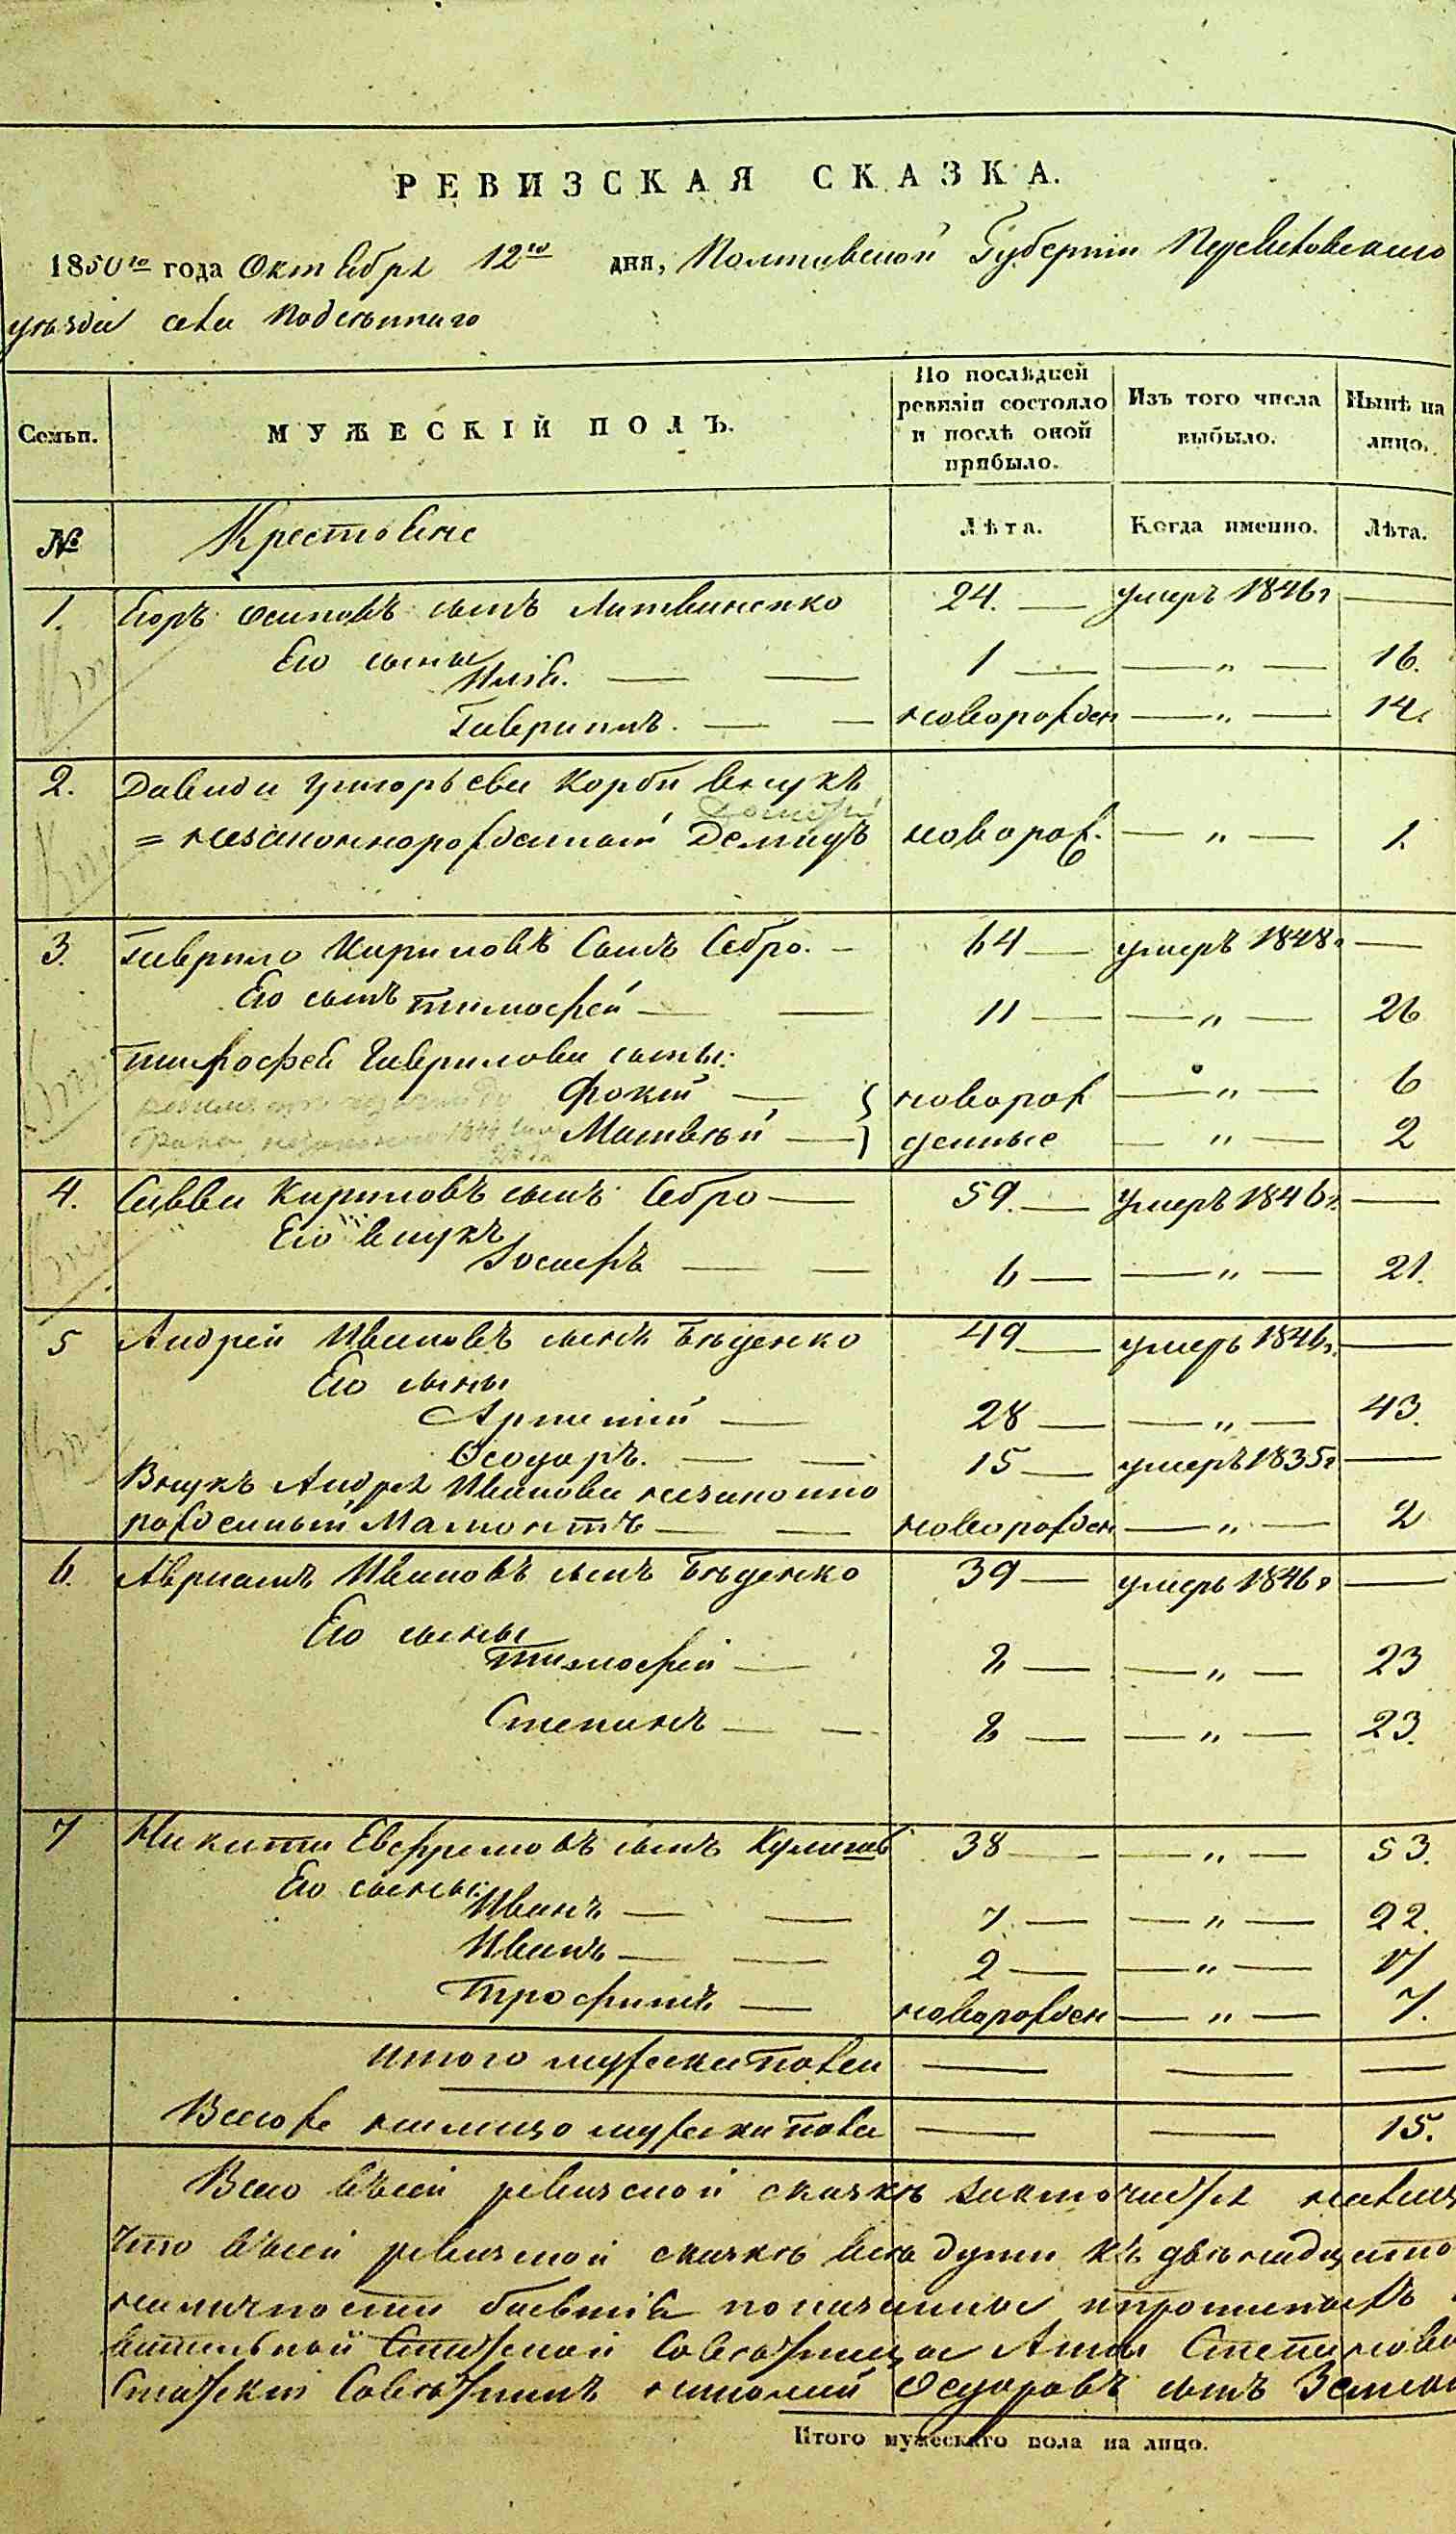 РЕВИЗСКАЯ СКАЗКА.
1850го года Октября 12го дня, Полтавской Губернии
уезда села
Семьи.
МУЖЕСКІЙ ПОЛЪ.
По послѣдней
ревизіи состояло
и послѣ оной
прибыло.
Изъ того числа
выбыло.
Нынѣ на
лицо.
№
Крестьяне
Лѣта.
Когда именно.
Лѣта.
1. Егоръ Осиповъ сынъ Литвиненко 24. — умеръ 1846г —
Его сыны
Илья. — — 1 — — „ — 16.
Гаврилъ. — — новорожден — „ — 14.
2. Давида Григорьева Корбы внукъ
= незаконнорожденный Демидъ новорож. — „ — 1.
3. Гаврило Кириловъ Сынъ Себро. — 64 — умеръ 1848г —
Его сынъ Тимофей — — 11 — — „ — 26
Тимофея Гаврилова сыны:
Фокій — } новорож — „ — 6
Матвѣй — } денные — „ — 2
4. Савва Кириловъ сынъ Себро — 59. — умеръ 1846г. —
Его внукъ
Іосифъ — — 6 — — „ — 21.
5 Андрей Ивановъ сынъ Бѣденко 49 — умеръ 1846г. —
Его сыны
— 28 — — „ — 43.
Ѳеодоръ. — — 15 — умеръ 1835г —
Внукъ Андрея Иванова незаконно
рожденный Мамонтъ — — новорожден — „ — 2
6. Авраамъ Ивановъ сынъ Бѣденко 39 — умеръ 1846г —
Его сыны
Тимофей — 8 — — „ — 23
Степанъ — — 8 — — „ — 23.
7 Никита Евфимовъ сынъ 38 — — „ — 53.
Его сыны:
Иванъ — — 7. — — „ — 22.
Иванъ — — 2 — — „ — 17
Трофимъ — новорожден — „ — 7.
Итого мужеска пола — — —
Всего же налицо мужеска пола — — 15.
Всего въ сей ревизской сказкѣ
что въ сей ревизской сказкѣ всѣ души къ
наличности бывшія показаны и
Статской Совѣтницы Анны Степановы
Статскій Совѣтникъ Ѳедоровъ сынъ
Итого мужескаго пола на лицо.